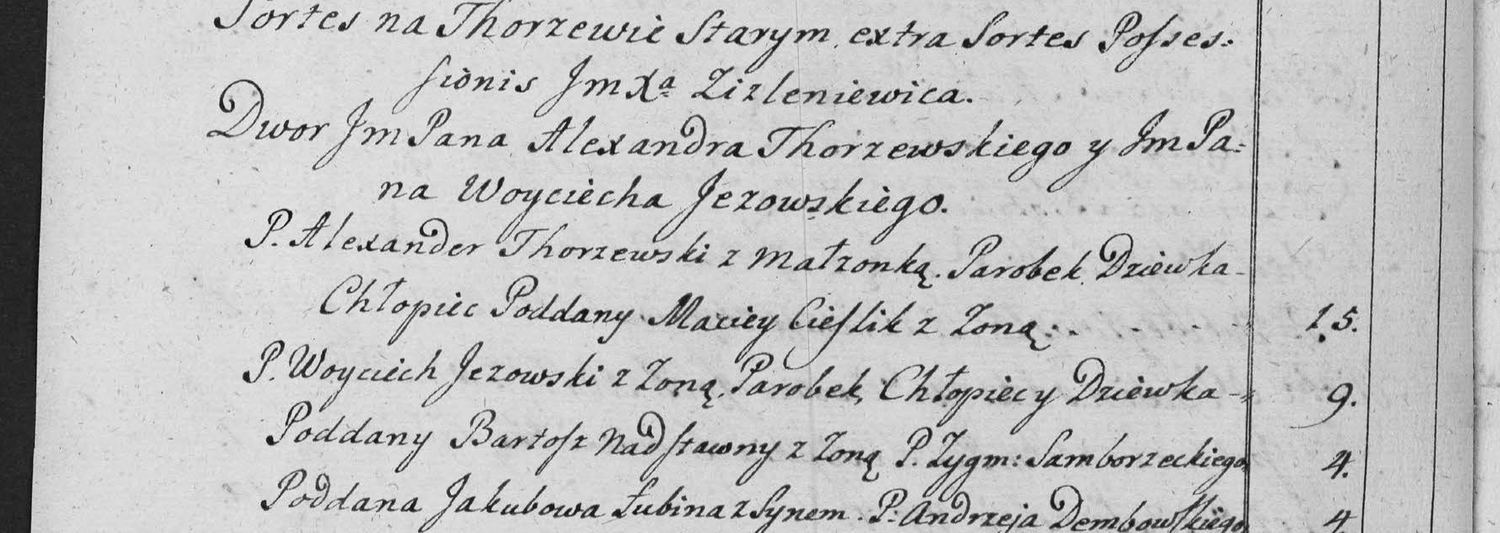 Sortes na Thorzewie Starym extra Sortes Posses:
sionis Jm Xa Zizleniewica.
Dwor Jm Pana Alexandra Thorzewskiego y Jm Pa:
na Woyciecha Jezowskiego.
P. Alexander Thorzewski z małzonką. Parobek Dziewka
Chłopiec Poddany Maciey Cieslik z Zoną. 15.
P. Woyciech Jezowski z Zoną, Parobek, Chłopiec y Dziewka 9.
Poddany Bartosz Nadstawny z Zoną P. Zygm: Samborzeckiego 4.
Poddana Jakubowa Łubina z Synem. P. Andrzeja Dembowskiego 4